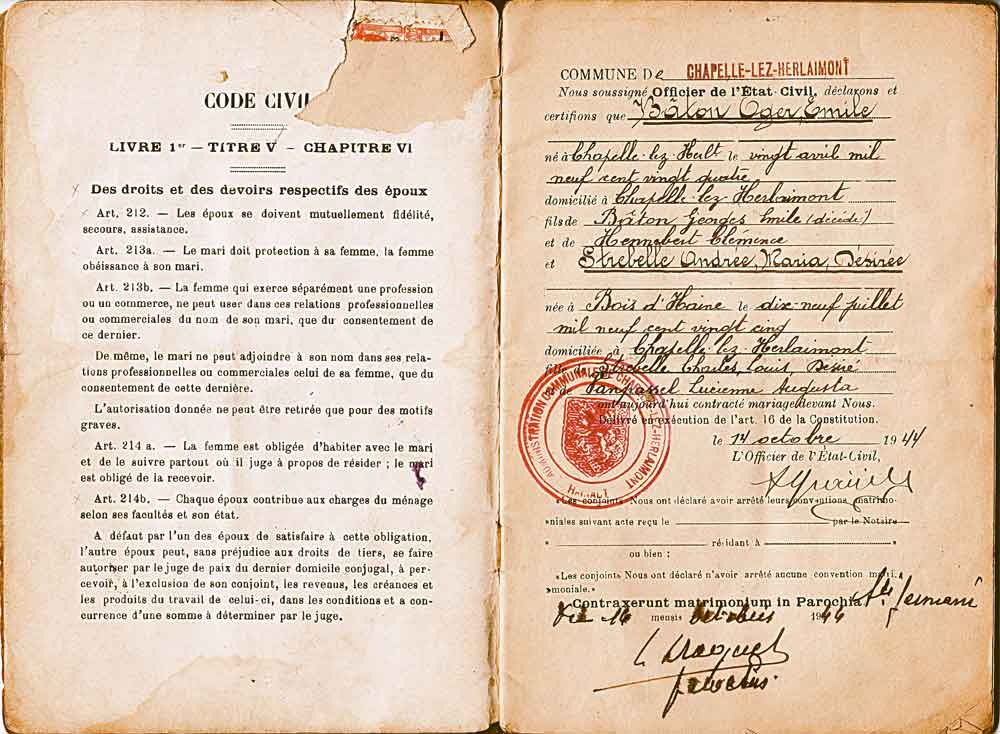 CODE CIVI
LIVRE 1er — TITRE V — CHAPITRE VI
Des droits et des devoirs respectifs des époux
Art. 212. — Les époux se doivent mutuellement fidélité,
secours, assistance.
Art. 213a. — Le mari doit protection à sa femme, la femme
obéissance à son mari.
Art. 213b. — La femme qui exerce séparément une profession
ou un commerce, ne peut user dans ces relations professionnelles
ou commerciales du nom de son mari, que du consentement de
ce dernier.
De même, le mari ne peut adjoindre à son nom dans ses rela-
tions professionnelles ou commerciales celui de sa femme, que du
consentement de cette dernière.
L'autorisation donnée ne peut être retirée que pour des motifs
graves.
Art. 214 a. — La femme est obligée d'habiter avec le mari
et de le suivre partout où il juge à propos de résider ; le mari
est obligé de la recevoir.
Art. 214b. — Chaque époux contribue aux charges du ménage
selon ses facultés et son état.
A défaut par l'un des époux de satisfaire à cette obligation,
l'autre époux peut, sans préjudice aux droits de tiers, se faire
autoriser par le juge de paix du dernier domicile conjugal, à per-
cevoir, à l'exclusion de son conjoint, les revenus, les créances et
les produits du travail de celui-ci, dans les conditions et a con-
currence d'une somme à déterminer par le juge.
COMMUNE De CHAPELLE-LEZ-HERLAIMONT
Nous soussigné Officier de l'État-Civil, déclarons et
certifions que Bâton Oger, Emile
né à Chapelle-lez-Herlt le vingt avril mil
neuf cent vingt quatre
domicilié à Chapelle-lez-Herlaimont
fils de Bâton Georges Emile (décédé)
et de Hennebert Clémence
et Strebelle Andrée, Maria, Désirée
née à Bois d'Haine le dix neuf juillet
mil neuf cent vingt cinq
domiciliée à Chapelle-lez-Herlaimont
fille de Strebelle Charles, Louis, Désiré
et de Vanpassel Lucienne Augusta
ont aujourd'hui contracté mariage devant Nous.
Délivré en exécution de l'art. 16 de la Constitution.
le 14 octobre 1944
L'Officier de l'État-Civil,
ADMINISTRATION COMMUNALE DE CHAPELLE-LEZ-HERLAIMONT
HAINAUT
«Les conjoints Nous ont déclaré avoir arrêté leurs conventions matrimo-
»niales suivant acte reçu le par le Notaire
» résidant à »
ou bien :
«Les conjoints Nous ont déclaré n'avoir arrêté aucune convention matri-
»moniale.»
Contraxerunt matrimonium in Parochia Sti Germani
Die 14 mensis Octobris 1944